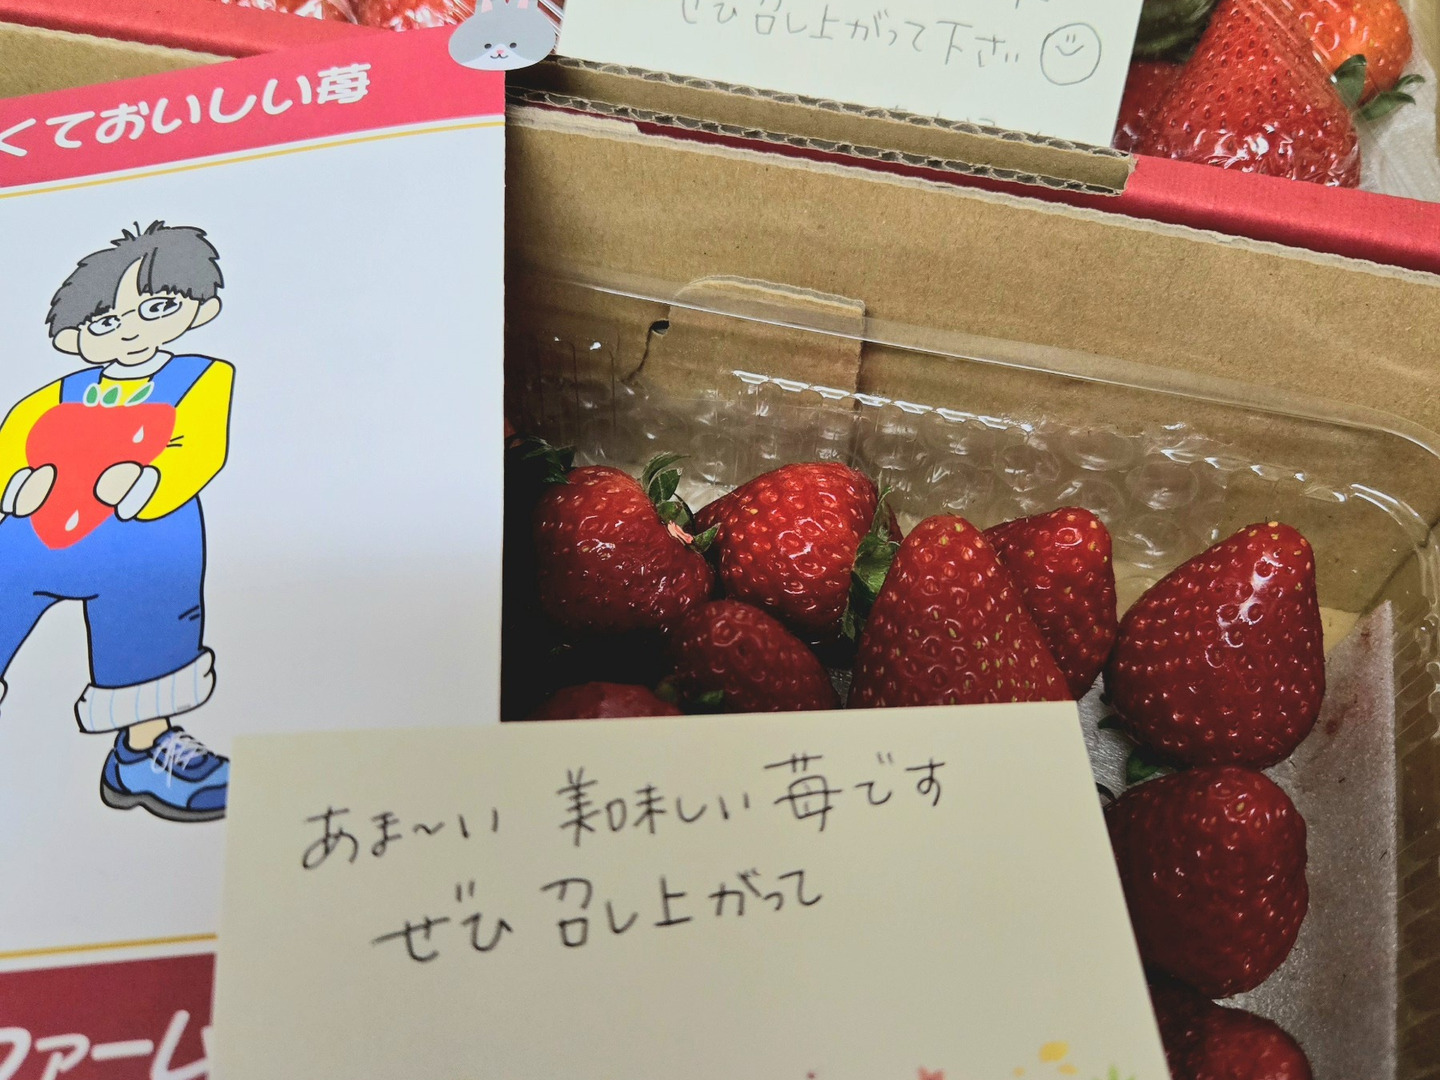 ぜひ召し上がって下さい
くておいしい苺
あま〜い 美味しい苺です
ぜひ 召し上がって
ファーム